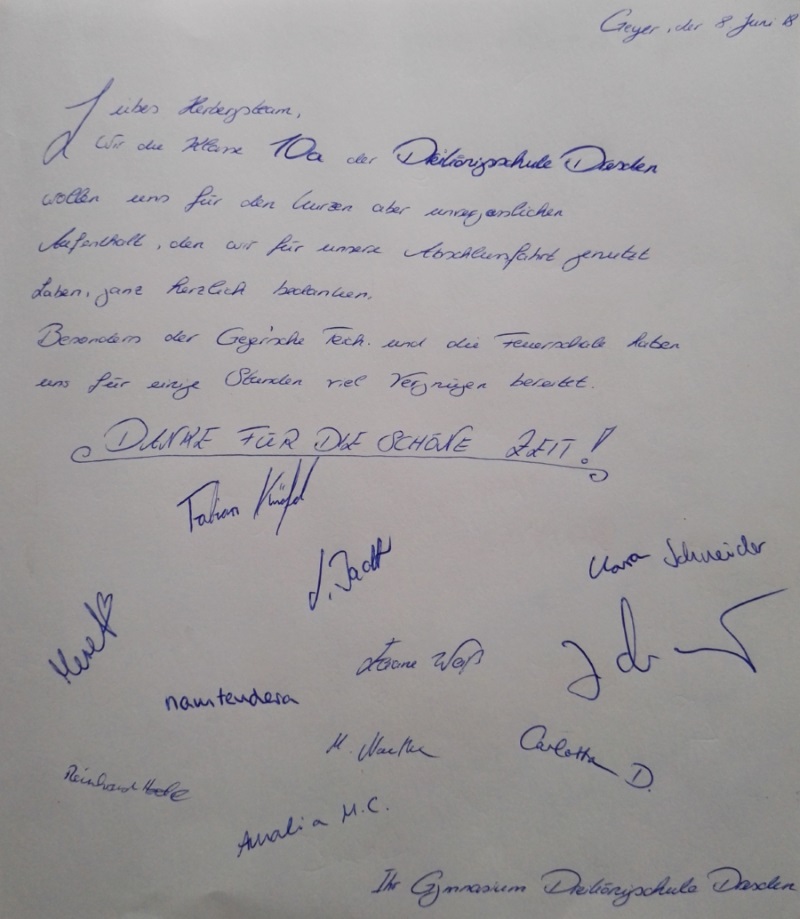 Geyer, der 8 Juni 18
Liebes Herbergsteam,
Wir die Klasse 10a der Dreikönigsschule Dresden
wollen uns für den kurzen aber unvergesslichen
Aufenthalt, den wir für unsere Abschlussfahrt genutzt
haben, ganz herzlich bedanken.
Besonders der Geyrische Teich und die Feuerschale haben
uns für einige Stunden viel Vergnügen bereitet.
DANKE FÜR DIE SCHÖNE ZEIT!
Fabian
Clara Schneider
Meret
Weiß
namtendera
M.
Carlotta D.
Reinhard
Amalia M.C.
Ihr Gymnasium Dreikönigschule Dresden